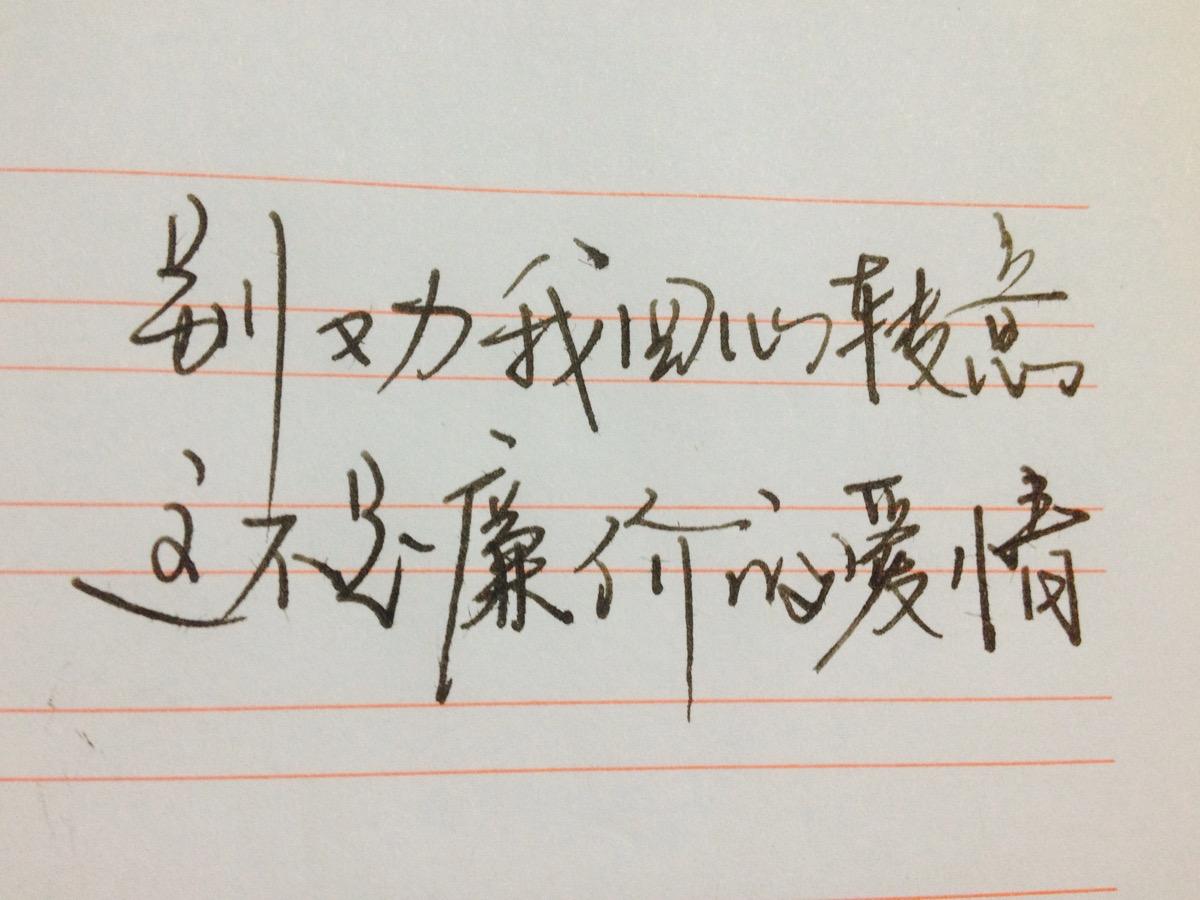 别劝我回心转意
这不是廉价的爱情